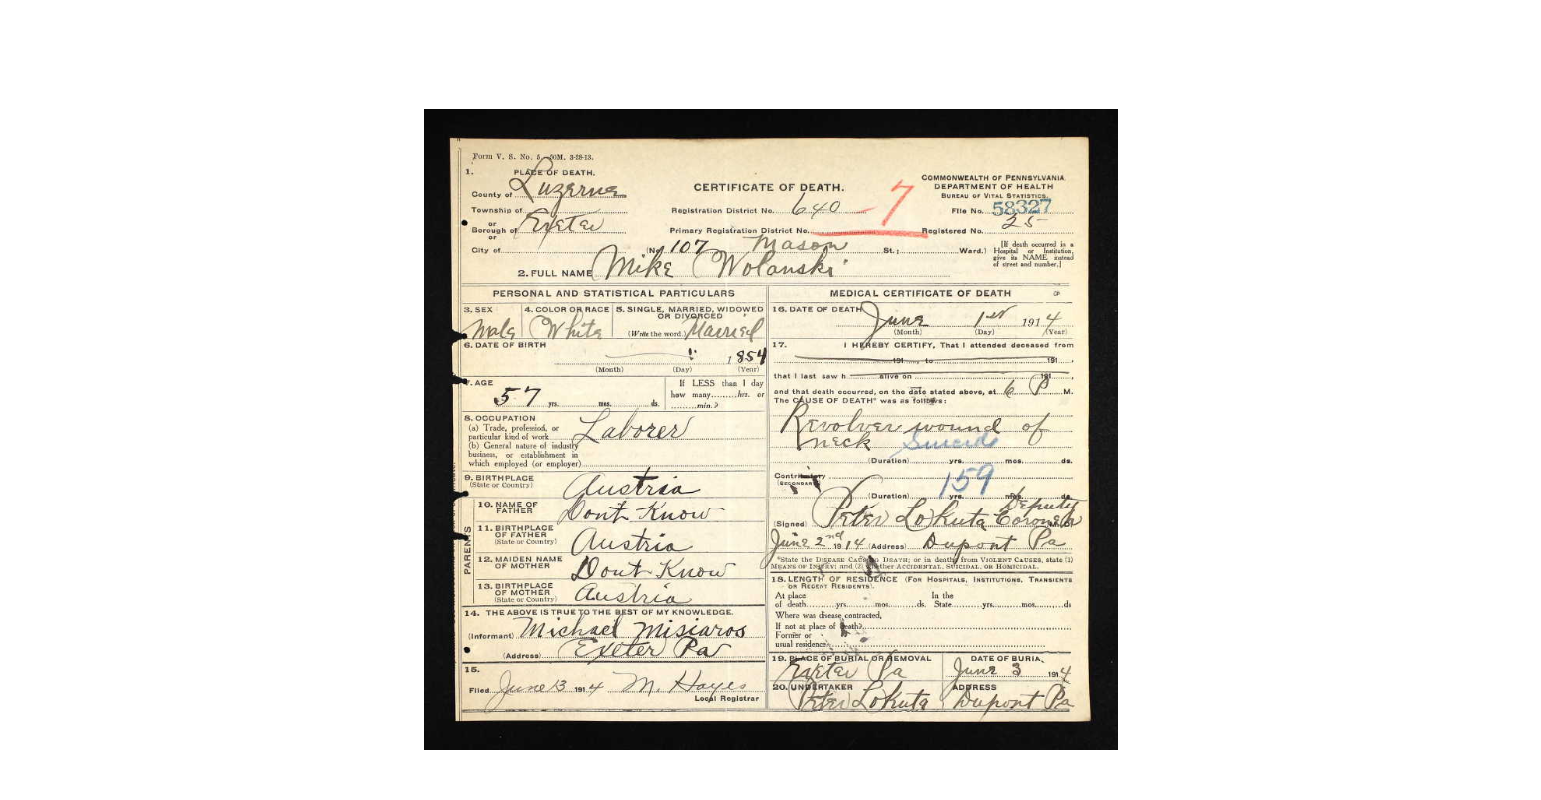 Form V. S. No. 5—50M. 3-28-13.
1. PLACE OF DEATH.
County of Luzerne
Township of
or
Borough of Exeter
or
City of
CERTIFICATE OF DEATH.
Registration District No. 640
7
Primary Registration District No.
(No. 107 Mason St.; Ward.)
COMMONWEALTH OF PENNSYLVANIA
DEPARTMENT OF HEALTH
BUREAU OF VITAL STATISTICS.
File No. 58327
Registered No. 25
[If death occurred in a
Hospital or Institution,
give its NAME instead
of street and number.]
2. FULL NAME Mike Wolanski
PERSONAL AND STATISTICAL PARTICULARS
3. SEX Male
4. COLOR OR RACE White
5. SINGLE, MARRIED, WIDOWED
OR DIVORCED
(Write the word.) Married
6. DATE OF BIRTH
1854
(Month) (Day) (Year)
7. AGE
57 yrs. mos. ds.
If LESS than 1 day
how many hrs. or
min.?
8. OCCUPATION
(a) Trade, profession, or
particular kind of work Laborer
(b) General nature of industry
business, or establishment in
which employed (or employer)
9. BIRTHPLACE
(State or Country) Austria
PARENTS
10. NAME OF
FATHER Dont Know
11. BIRTHPLACE
OF FATHER
(State or Country) Austria
12. MAIDEN NAME
OF MOTHER Dont Know
13. BIRTHPLACE
OF MOTHER
(State or Country) Austria
14. THE ABOVE IS TRUE TO THE BEST OF MY KNOWLEDGE.
(Informant) Michael Misiaros
(Address) Exeter Pa
15.
Filed June 3 1914 M. Hayes
Local Registrar
MEDICAL CERTIFICATE OF DEATH
16. DATE OF DEATH
June 1st 1914
(Month) (Day) (Year)
17. I HEREBY CERTIFY, That I attended deceased from
191 , to 191 ,
that I last saw h alive on 191 ,
and that death occurred, on the date stated above, at 6 P M.
The CAUSE OF DEATH* was as follows:
Revolver wound of
neck Suicide
(Duration) yrs. mos. ds.
Contributory
(SECONDARY)
159
(Duration) yrs. mos. ds.
Deputy
(Signed) Peter Lokuta Coroner
June 2nd 1914 (Address) Dupont Pa
*State the DISEASE CAUSING DEATH; or in deaths from VIOLENT CAUSES, state (1)
MEANS OF INJURY; and (2) whether ACCIDENTAL, SUICIDAL, OR HOMICIDAL.
18. LENGTH OF RESIDENCE (FOR HOSPITALS, INSTITUTIONS, TRANSIENTS
OR RECENT RESIDENTS).
At place In the
of death yrs. mos. ds. State yrs. mos. ds
Where was disease contracted,
If not at place of death?
Former or
usual residence
19. PLACE OF BURIAL OR REMOVAL
Exeter Pa
DATE OF BURIAL
June 3 1914
20. UNDERTAKER
Peter Lokuta
ADDRESS
Dupont Pa